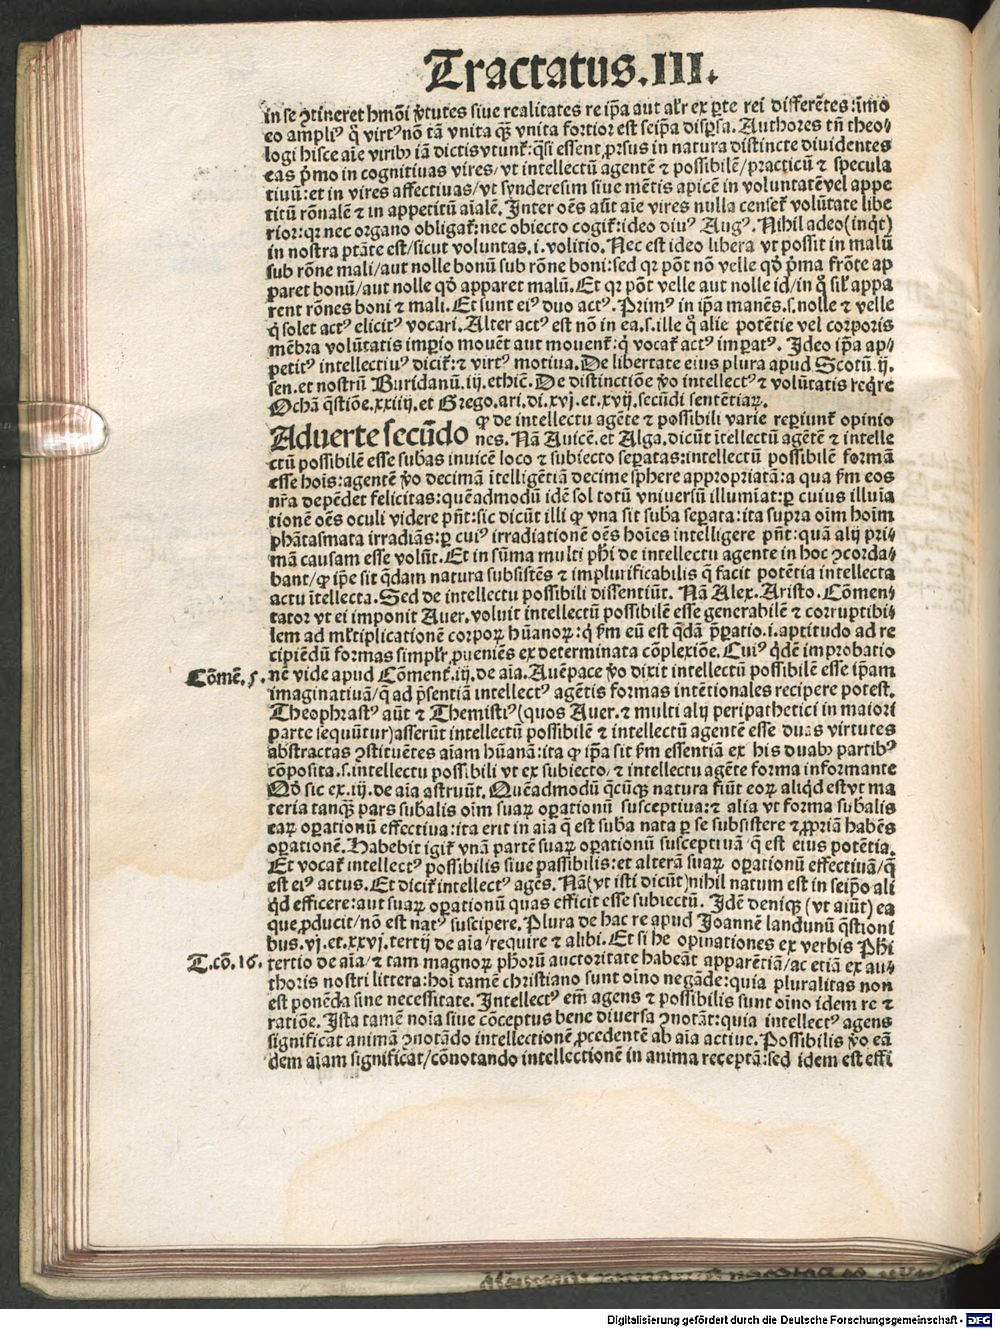 Tractatus.III.
in se ꝯtineret hmõi ṽtutes siue realitates re ip̃a aut alr̃ ex ꝑte rei differẽtes:im̃o
eo ampliꝰ q̃ virtꝰ nõ tã vnita qq̃ vnita fortior est seip̃a disꝑsa. Authores tñ theo⸗
logi hisce aĩe viribꝫ iã dictis vtunt᷑: q̃si essent ꝓrsus in natura distincte diuidentes
eas p̃mo in cognitiuas vires/vt intellectũ agentẽ ⁊ possibilẽ/practicũ ⁊ specula
tiuũ: et in vires affectiuas/vt synderesim siue mẽtis apicẽ in voluntatẽ vel appe
titũ rõnalẽ ⁊ in appetitũ aĩalẽ. Inter oẽs aũt aĩe vires nulla censet᷑ volũtate libe
rior: qꝛ nec organo obligat᷑: nec obiecto cogit᷑: ideo diuꝰ Augꝰ. Nihil adeo(inq̃t)
in nostra ptãte est/sicut voluntas.i.volitio. Nec est ideo libera vt possit in malũ
sub rõne mali/aut nolle bonũ sub rõne boni: sed qꝛ põt nõ velle qd̃ p̃ma frõte ap
paret bonũ/aut nolle qd̃ apparet malũ. Et qꝛ põt velle aut nolle id/in q̊ sil᷑ appa
rent rõnes boni ⁊ mali. Et sunt eiꝰ duo actꝰ. Primꝰ in ip̃a manẽs.s.nolle ⁊ velle
q̃ solet actꝰ elicitꝰ vocari. Alter actꝰ est nõ in ea.s.ille q̊ alie potẽtie vel corporis
mẽbra volũtatis imꝑio mouẽt aut mouent᷑: q̃ vocat᷑ actꝰ imꝑatꝰ. Ideo ip̃a ap⸗
petitꝰ intellectiuꝰ dicit᷑: ⁊ virtꝰ motiua. De libertate eius plura apud Scotũ ij.
sen. et nostrũ Buridanũ.iij.ethic̃. De distinctiõe ṽo intellectꝰ ⁊ volũtatis req̃re
Ochã q̃stiõe.xxiiij. et Grego.ari.di.xvj.et.xvij.secũdi sentẽtiaꝝ.
Aduerte secũdo
ꝙ de intellectu agẽte ⁊ possibili varie reꝑiunt᷑ opinio
nes. Nã Auicẽ. et Alga. dicũt ĩtellectũ agẽtẽ ⁊ intelle
ctũ possibilẽ esse subas inuicẽ loco ⁊ subiecto seꝑatas: intellectũ possibilẽ formã
esse hoĩs: agentẽ ṽo decimã ĩtelligẽtiã decime sphere appropriatã: a qua ẜm eos
nr̃a depẽdet felicitas: quẽadmodũ idẽ sol totũ vniuersũ illumĩat: ꝑ cuius illuĩa
tionẽ oẽs oculi videre pñt: sic dicũt illi ꝙ vna sit suba seꝑata: ita supra oĩm hoĩm
phãtasmata irradiãs: ꝑ cuiꝰ irradiationẽ oẽs hoĩes intelligere pñt: quã alij pri⸗
mã causam esse volũt. Et in sũma multi phĩ de intellectu agente in hoc ꝯcorda⸗
bant/ꝙ ip̃e sit q̃dam natura subsistẽs ⁊ implurificabilis q̃ facit potẽtia intellecta
actu ĩtellecta. Sed de intellectu possibili dissentiũt. Nã Alex. Aristo. Cõmen⸗
tator vt ei imponit Auer. voluit intellectũ possibilẽ esse generabilẽ ⁊ corruptibi⸗
lem ad mĺtiplicationẽ corporꝝ hũanorꝝ: q̃ ẜm eũ est q̃dã p̃ꝑatio.i.aptitudo ad re
cipiẽdũ formas simplr̃ ꝓueniẽs ex determinata cõplexiõe. Cuiꝰ q̃dẽ improbatio
nẽ vide apud Cõment᷑.iij.de aĩa. Auẽpace ṽo dixit intellectũ possibilẽ esse ip̃am
Cõmẽ.5.
imaginatiuã/q̃ ad p̃sentiã intellectꝰ agẽtis formas intẽtionales recipere potest.
Theophrastꝰ aũt ⁊ Themistiꝰ(quos Auer. ⁊ multi alij peripathetici in maiori
parte sequũtur)asserũt intellectũ possibilẽ ⁊ intellectũ agentẽ esse duas virtutes
abstractas ꝯstituẽtes aĩam hũanã: ita ꝙ ip̃a sit ẜm essentiã ex his duabꝫ partibꝰ
cõposita.s.intellectu possibili vt ex subiecto/⁊ intellectu agẽte forma informante
Qd̃ sic ex.iij.de aĩa astruũt. Quẽadmodũ q̃cũqꝫ natura fiũt eoꝝ aliq̃d est vt ma
teria tanqꝫ pars subalis oĩm suaꝝ oꝑationũ susceptiua: ⁊ alia vt forma subalis
eaꝝ oꝑationũ effectiua: ita erit in aĩa q̃ est suba nata ꝑ se subsistere ⁊ ꝓpriã habẽs
oꝑationẽ. Habebit igit᷑ vnã partẽ suaꝝ oꝑationũ susceptiuã q̃ est eius potẽtia.
Et vocat᷑ intellectꝰ possibilis siue passibilis: et alterã suaꝝ oꝑationũ effectiuã/q̃
est eiꝰ actus. Et dicit᷑ intellectꝰ agẽs. Nã(vt isti dicũt)nihil natum est in seip̃o ali
q̃d efficere: aut suaꝝ oꝑationũ quas efficit esse subiectũ. Idẽ deniqꝫ (vt aiũt) ea
que ꝓducit/nõ est natꝰ suscipere. Plura de hac re apud Joannẽ landunũ q̃stioni
bus.vj.et.xxvj.tertij de aĩa/require ⁊ alibi. Et si he opinationes ex verbis Phĩ
T.cõ.16.
tertio de aĩa/⁊ tam magnoꝝ phõrũ auctoritate habeãt apparẽtiã/ac etiã ex au⸗
thoris nostri littera: hoĩ tamẽ christiano sunt oĩno negãde: quia pluralitas non
est ponẽda sine necessitate. Intellectꝰ em̃ agens ⁊ possibilis sunt oĩno idem re ⁊
ratiõe. Ista tamẽ noĩa siue cõceptus bene diuersa ꝯnotãt: quia intellectꝰ agens
significat animã ꝯnotãdo intellectionẽ ꝓcedentẽ ab aĩa actiue. Possibilis ṽo eã
dem aĩam significat/cõnotando intellectionẽ in anima receptã: sed idem est effi
Digitalisierung gefördert durch die Deutsche Forschungsgemeinschaft - DFG